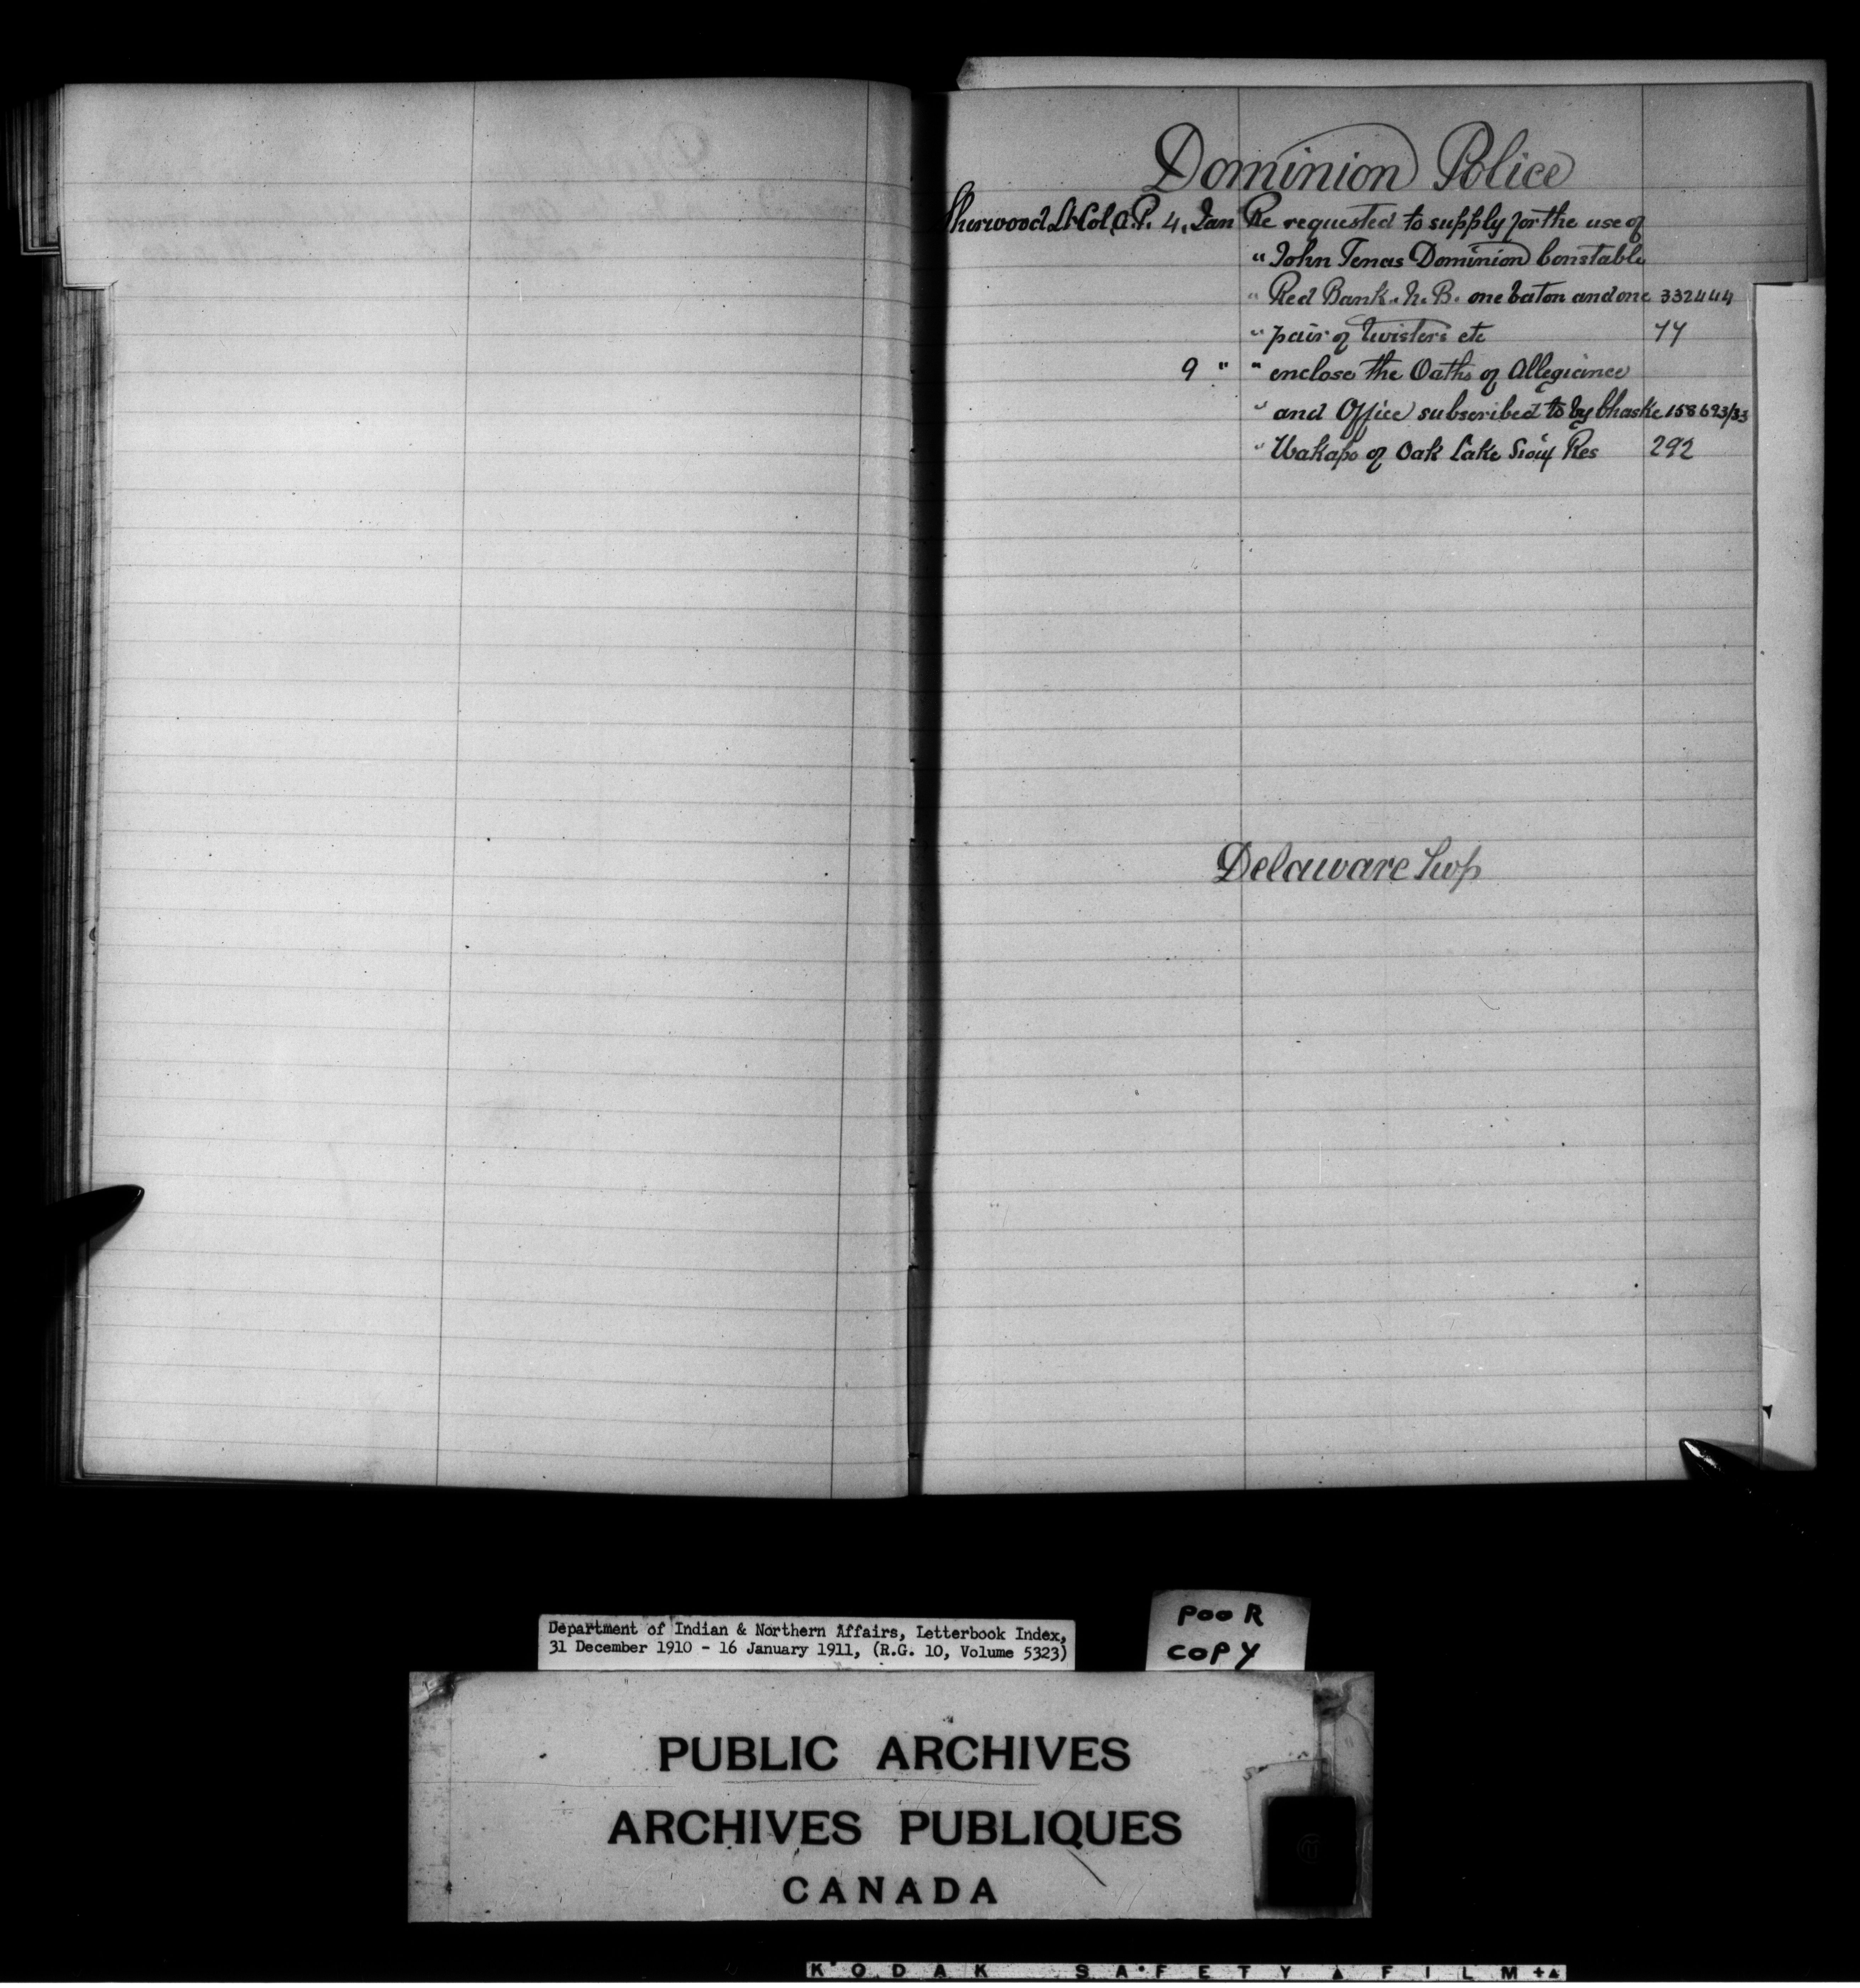 Dominion Police
Sherwood Lt Col A.P. 4. Jan Re requested to supply for the use of
" John Tenas Dominion Constable
" Red Bank. N. B. one baton and one 332444
" pair of twisters etc 44
9 " " enclose the Oaths of Allegiance
" and Office subscribed to by Chaske 158693/33
" Wakapo of Oak Lake Sioux Res 292
Delaware Twp
Department of Indian & Northern Affairs, Letterbook Index,
31 December 1910 - 16 January 1911, (R.G. 10, Volume 5323)
POOR
COPY
PUBLIC ARCHIVES
ARCHIVES PUBLIQUES
CANADA
KODAK SAFETY FILM